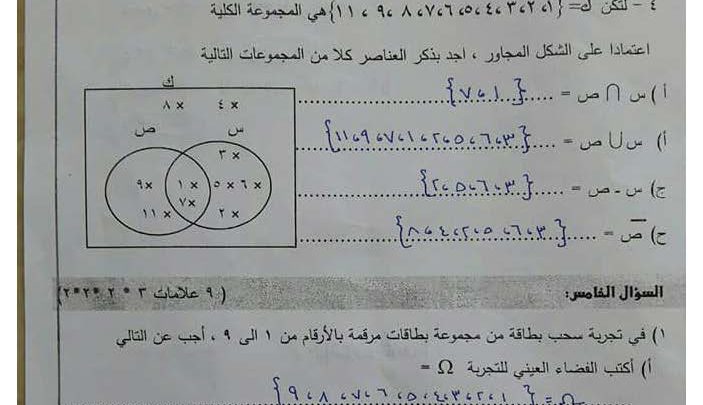 ٤ - لتكن ك= {١، ٢، ٣، ٤، ٥، ٦، ٧، ٨، ٩، ١١} هي المجموعة الكلية
اعتمادا على الشكل المجاور ، اجد بذكر العناصر كلا من المجموعات التالية
أ ) س ∩ ص = {١، ٧}
أ) س ∪ ص = {٣، ٦، ٥، ٢، ١، ٧، ٩، ١١}
ج) س - ص = {٣، ٦، ٥، ٢}
ح) ص̅ = {٣، ٦، ٥، ٢، ٤، ٨}
ك
٤ ×
٨ ×
س
ص
٣ ×
٦ ×
٥ ×
١ ×
٩ ×
٧ ×
٢ ×
١١ ×
السؤال الخامس: ( ٩ علامات ٣ * ٢ *٢*٢)
١) في تجربة سحب بطاقة من مجموعة بطاقات مرقمة بالأرقام من ١ الى ٩ ، أجب عن التالي
أ) أكتب الفضاء العيني للتجربة Ω =
Ω = {١، ٢، ٣، ٤، ٥، ٦، ٧، ٨، ٩}